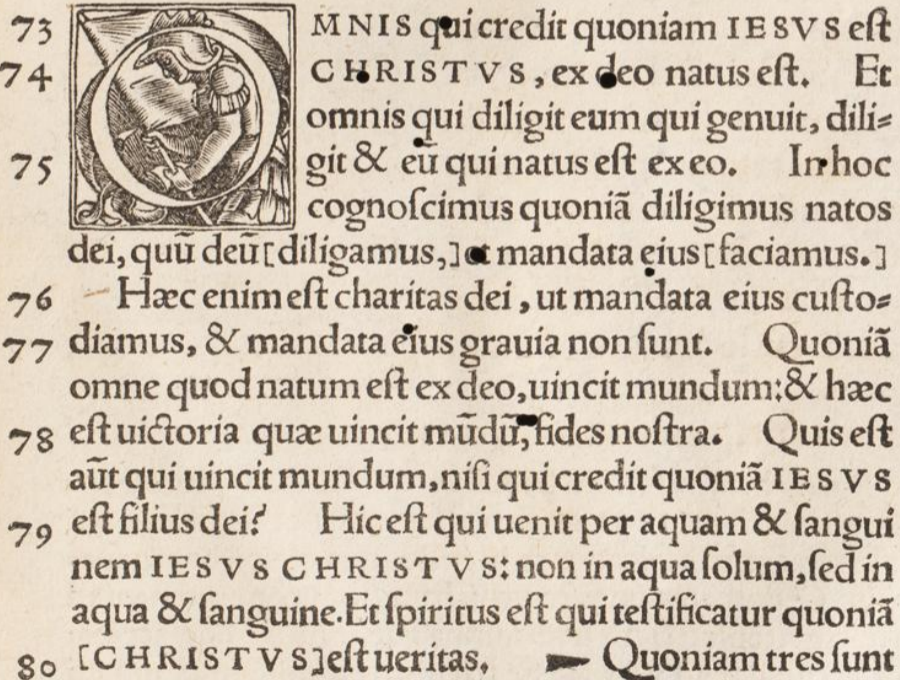 73 OMNIS qui credit quoniam IESVS eſt
74 CHRISTVS, ex deo natus eſt. Et
omnis qui diligit eum qui genuit, dili⸗
75 git & eū qui natus eſt ex eo. In hoc
cognoſcimus quoniā diligimus natos
dei, quū deū[diligamus,]et mandata eius[faciamus.]
76 Hæc enim eſt charitas dei, ut mandata eius cuſto⸗
77 diamus, & mandata eius grauia non ſunt. Quoniā
omne quod natum eſt ex deo, uincit mundum:& hæc
78 eſt uictoria quæ uincit mūdū, fides noſtra. Quis eſt
aūt qui uincit mundum, niſi qui credit quoniā IESVS
79 eſt filius dei? Hic eſt qui uenit per aquam & ſangui
nem IESVS CHRISTVS: non in aqua ſolum, ſed in
aqua & ſanguine. Et ſpiritus eſt qui teſtificatur quoniā
80 [CHRISTVS]eſt ueritas. Quoniam tres ſunt